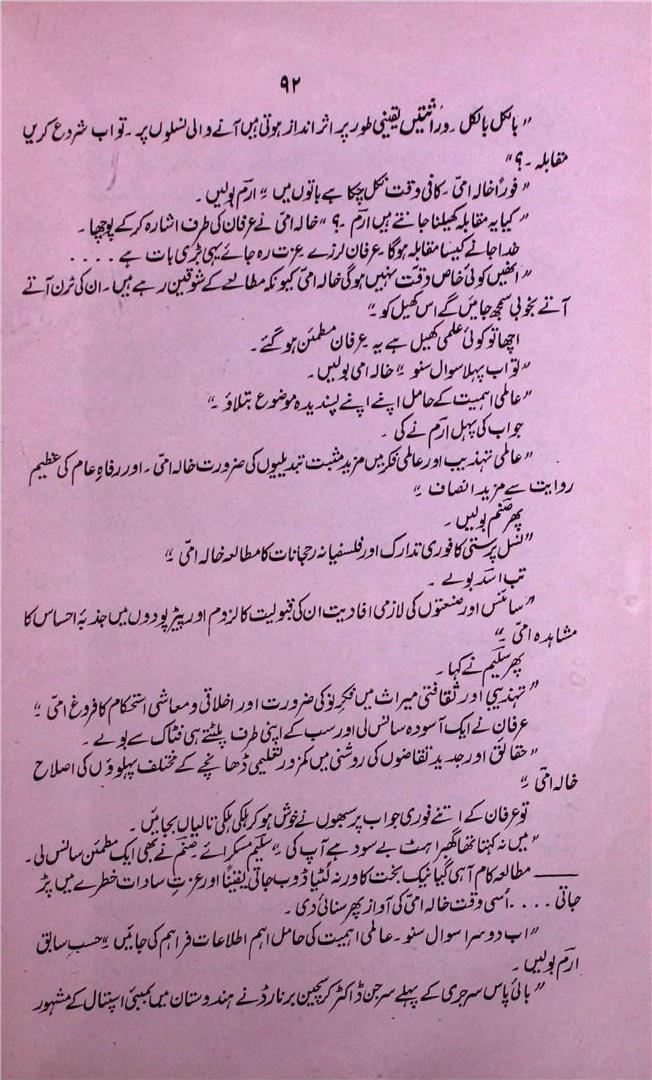 ۹۲
"بالکل بالکل ۔ وراثتیں یقینی طور پر اثر انداز ہوتی ہیں آنے والی نسلوں پر ۔ تو اب شروع کریں
مقابلہ ۔؟"
"فوراً خالہ امّی ۔ کافی وقت نکل چکا ہے باتوں میں" ارم بولیں ۔
"کیا یہ مقابلہ کھیلنا جانتے ہیں ارم ۔؟" خالہ امّی نے عرفان کی طرف اشارہ کر کے پوچھا ۔
خدا جانے کیسا مقابلہ ہوگا عرفان لرزے عزت رہ جائے یہی بڑی بات ہے ....
"انھیں کوئی خاص دقّت نہیں ہوگی خالہ امّی کیونکہ مطالعے کے شوقین رہے ہیں ۔ ان کی ٹرن آتے
آتے بخوبی سمجھ جائیں گے اس کھیل کو ۔"
اچھا تو کوئی علمی کھیل ہے یہ عرفان مطمئن ہو گئے ۔
"تو اب پہلا سوال سنو" خالہ امی بولیں ۔
"عالمی اہمیت کے حامل اپنے اپنے پسندیدہ موضوع بتلاؤ ۔"
جواب کی پہل ارم نے کی ۔
"عالمی تہذیب اور عالمی فکر میں مزید مثبت تبدیلیوں کی ضرورت خالہ امّی ۔ اور رفاہِ عام کی عظیم
روایت سے مزید انصاف ۔"
پھر صنم بولیں ۔
"نسل پرستی کا فوری تدارک اور فلسفیانہ رجحانات کا مطالعہ خالہ امّی ۔"
تب اسد بولے ۔
"سائنس اور صنعتوں کی لازمی افادیت ان کی قبولیت کا لزوم اور پیڑ پودوں میں جذبۂ احساس کا
مشاہدہ امّی ۔"
پھر سلیم نے کہا ۔
"تہذیبی اور ثقافتی میراث میں فکرِ نو کی ضرورت اور اخلاقی و معاشی استحکام کا فروغ امّی ۔"
عرفان نے ایک آسودہ سانس لی اور سب کے اپنی طرف پلٹتے ہی تپاک سے بولے ۔
"حقائق اور جدید تقاضوں کی روشنی میں کمزور تعلیمی ڈھانچے کے مختلف پہلوؤں کی اصلاح
خالہ امّی ۔"
تو عرفان کے اتنے فوری جواب پر سبھوں نے خوش ہو کر ہلکی ہلکی تالیاں بجائیں ۔
"میں نہ کہتا تھا گھبراہٹ بے سود ہے آپ کی" سلیم مسکرائے صنم نے بھی ایک مطمئن سانس لی ۔
—— مطالعہ کام آ ہی گیا نیک بخت کا ورنہ لُٹیا ڈوب جاتی یقیناً اور عزتِ سادات خطرے میں پڑ
جاتی .... اُسی وقت خالہ امّی کی آواز پھر سنائی دی ۔
"اب دوسرا سوال سنو ۔ عالمی اہمیت کی حامل اہم اطلاعات فراہم کی جائیں" حسبِ سابق
ارم بولیں ۔
"بائی پاس سرجری کے پہلے سرجن ڈاکٹر کرسچین برنارڈ نے ہندوستان میں بمبئی اسپتال کے مشہور